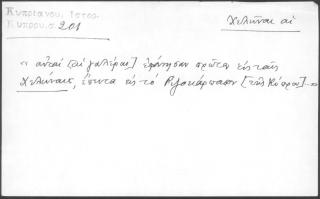 Κυπριανού, Ιστορ.
Κύπρου, σ. 201
Χελῶναι αἱ
" αὐταὶ [αἱ γαλέραι] ἐφάνησαν πρῶτον εἰς ταῖς
Χελώναις, ἔπειτα εἰς τὸ Ριζοκάρπασον [τῆς Κύπρου] — "